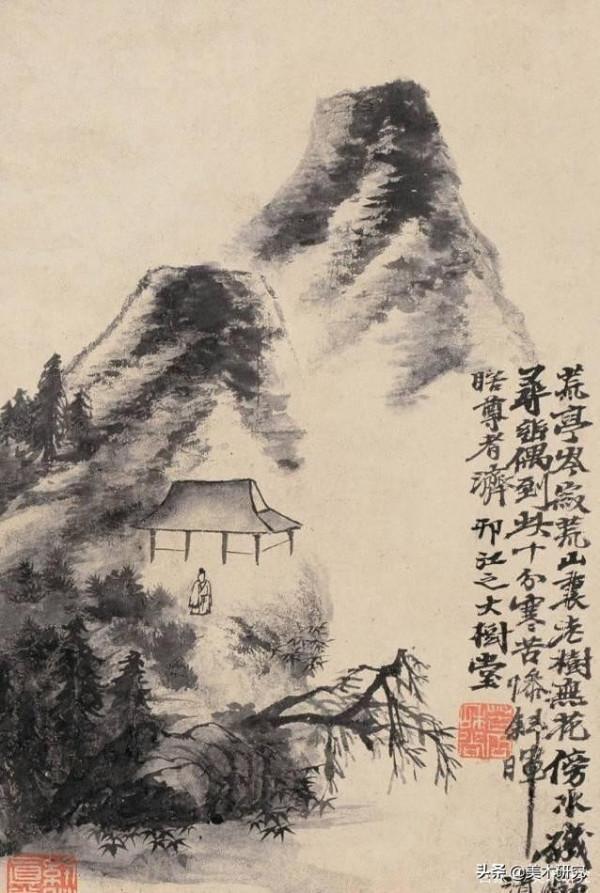 荒亭岑寂荒山裏老樹無花傍水磯
尋詣偶到此十分寒苦慘斜暉 清
瞎尊者濟 邗江之大樹堂
头条 @美术研究